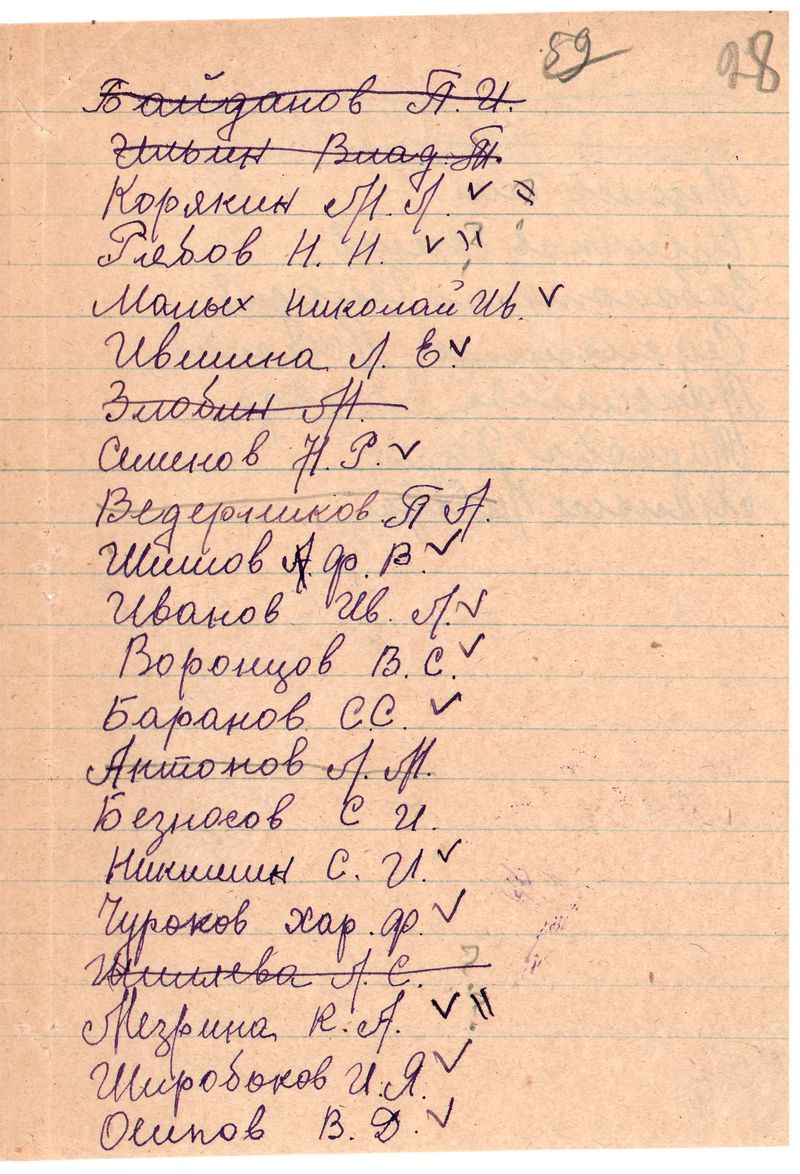 59 98
Байданов П.И.
Ильин Влад. Т.
Корякин М. Л. ✓ II
Глебов Н. Н. ✓ II
Малых Николай Ив. ✓
Ившина Л. Е. ✓
Злобин М.
Семенов Н. Р. ✓
Ведерников П А.
Шишов Аф. В. ✓
Иванов Ив. Л. ✓
Воронцов В. С. ✓
Баранов С.С. ✓
Антонов Л. М.
Безносов С И.
Никишин С. И. ✓
Чураков Хар. Ф. ✓
Шишлева Л. С. ?
Мезрина К. А. ✓ II
Широбоков И. Я. ✓
Осипов В. Д. ✓